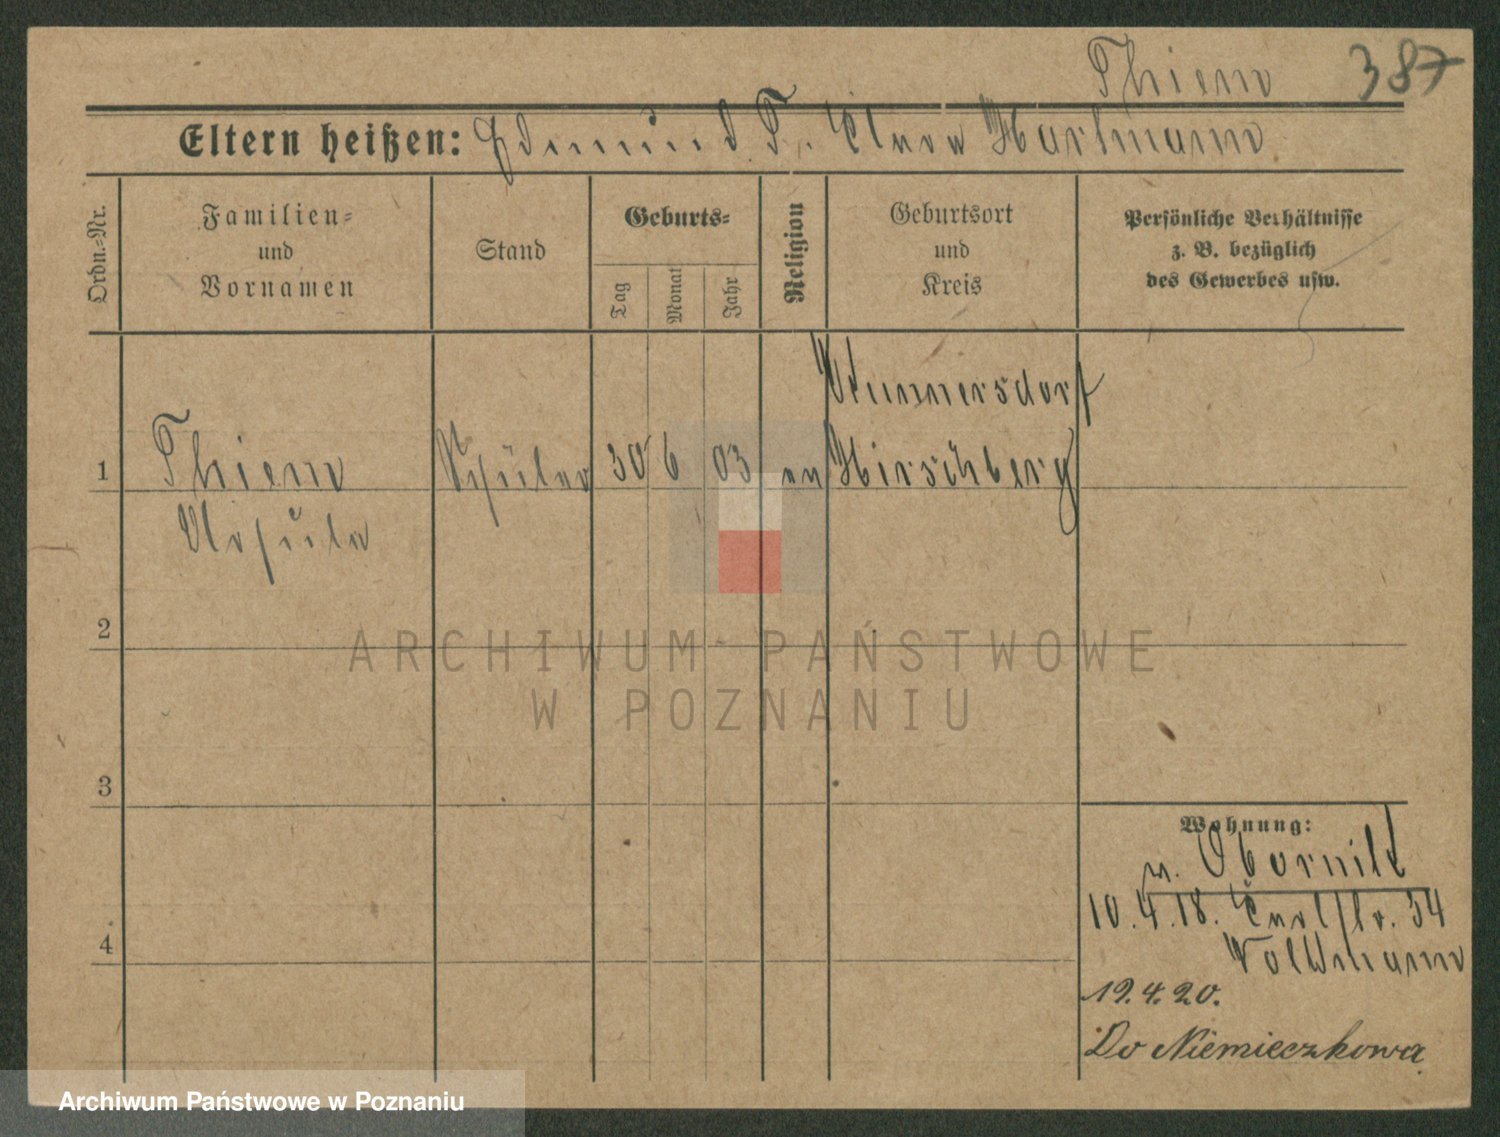 Thiem 387
Eltern heißen: Edmund T. Clara Hartmann
Ordn.-Nr.
Familien-
und
Vornamen
Stand
Geburts-
Tag
Monat
Jahr
Religion
Geburtsort
und
Kreis
Persönliche Verhältnisse
z. B. bezüglich
des Gewerbes usw.
1 Thiem Schüler 30 6 03 ev Hirschberg
Ursula
2
3
4
Wohnung:
v. Obornik
10.4.18. Carlstr. 34
Volkmann
19.4.20.
Do Niemieczkowa
ARCHIWUM PAŃSTWOWE
W POZNANIU
Archiwum Państwowe w Poznaniu